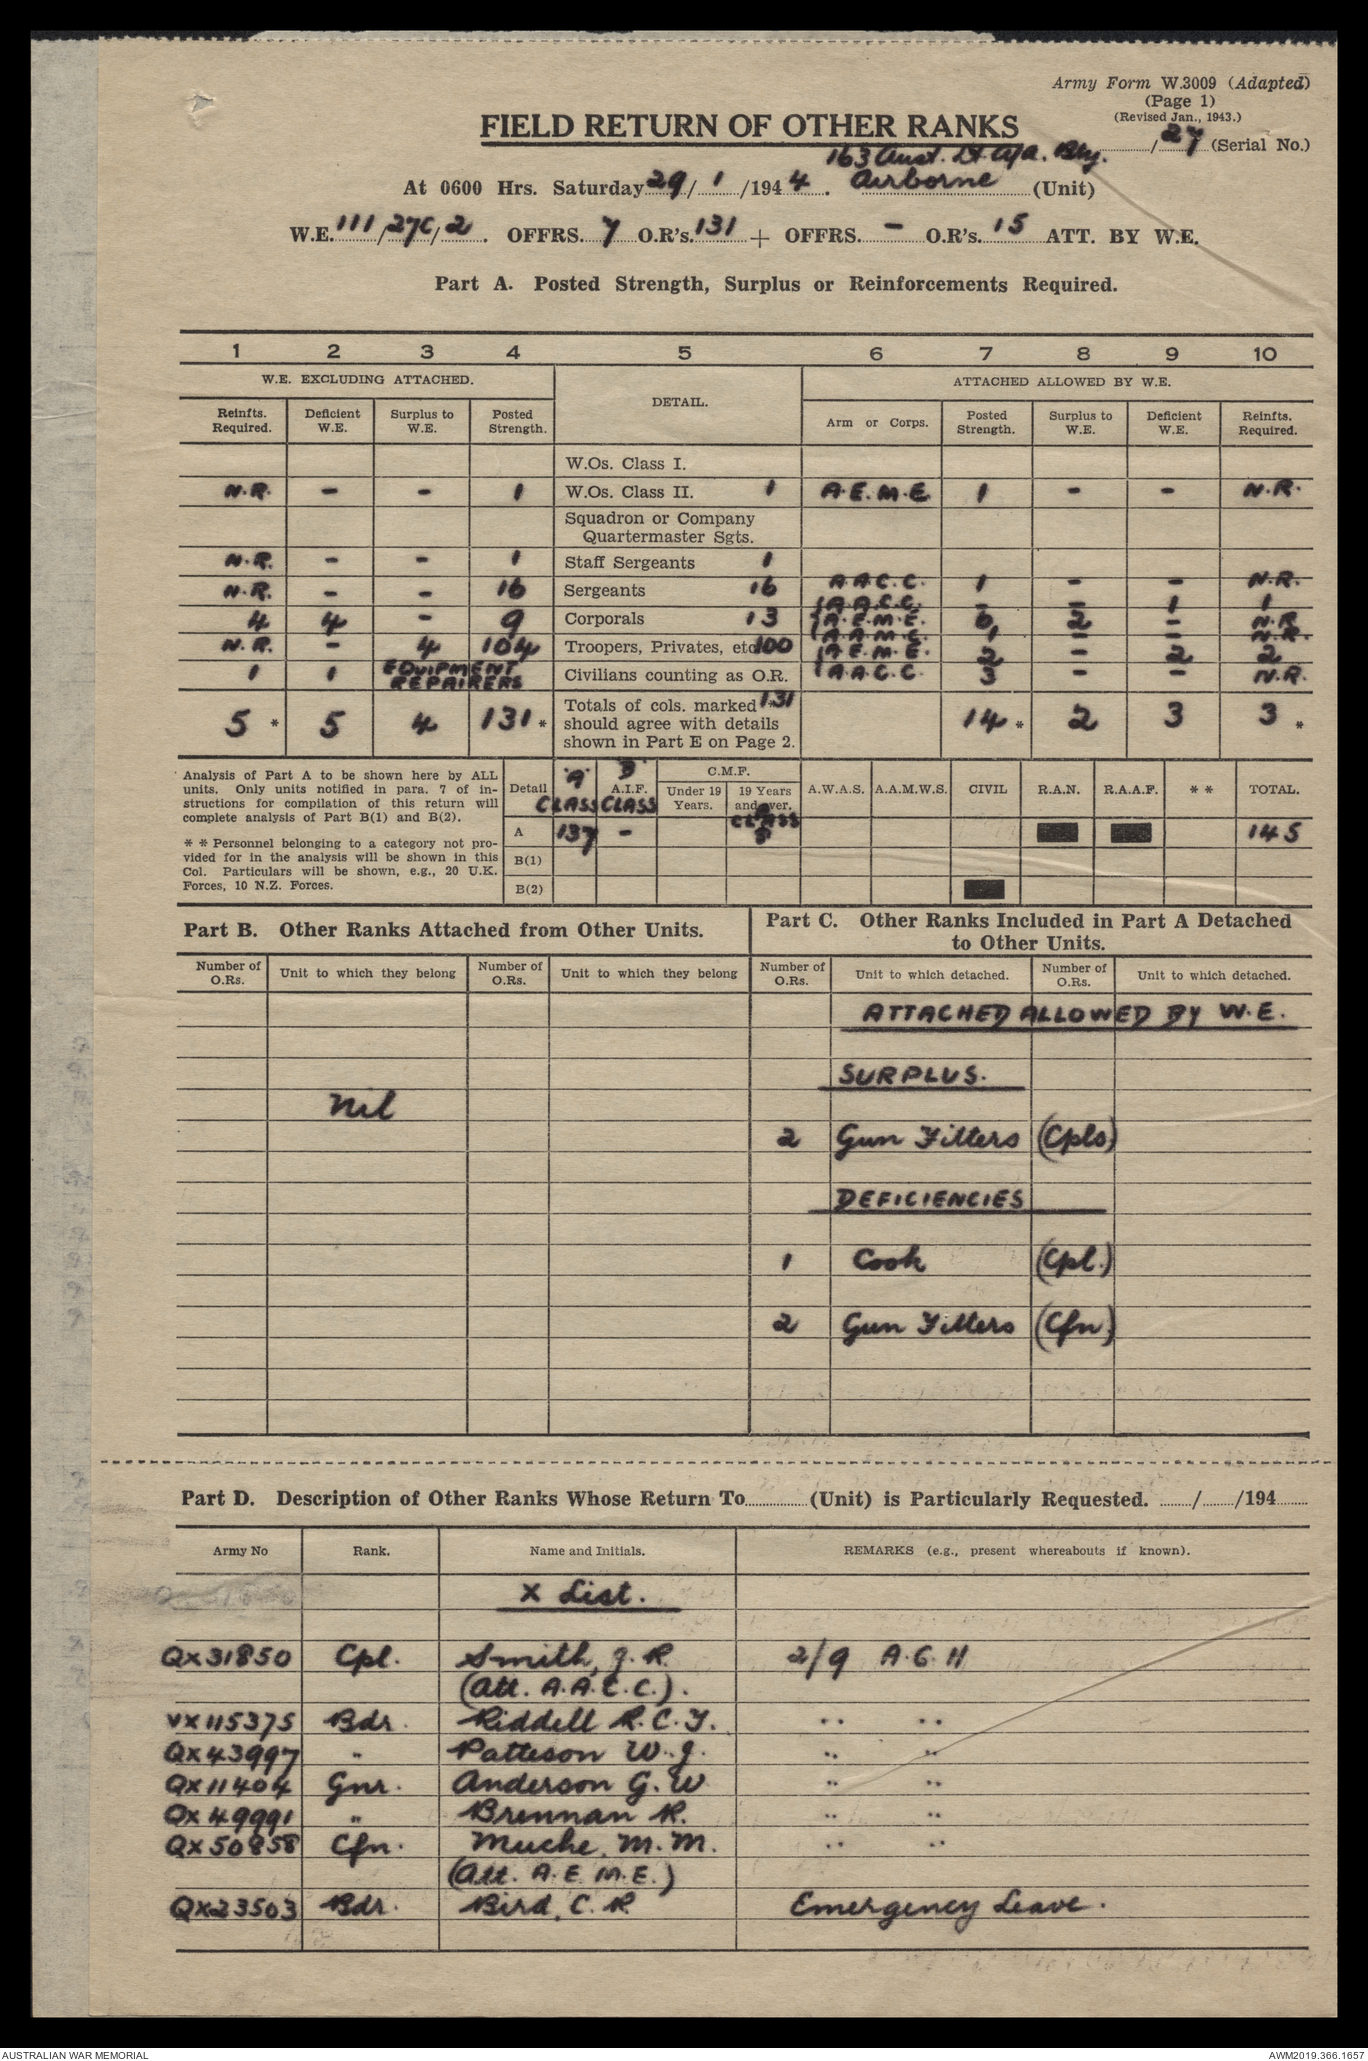 Army Form W.3009 (Adapted)
(Page 1)
(Revised Jan., 1943.)
FIELD RETURN OF OTHER RANKS
/ 27 (Serial No.)
163 Aust. Lt. A/A. Bty.
At 0600 Hrs. Saturday 29 / 1 /1944. Airborne (Unit)
W.E. 111/27C/2. OFFRS. 7 O.R's. 131 + OFFRS. - O.R's. 15 ATT. BY W.E.
Part A. Posted Strength, Surplus or Reinforcements Required.
1 2 3 4 5 6 7 8 9 10
W.E. EXCLUDING ATTACHED. DETAIL. ATTACHED ALLOWED BY W.E.
Reinfts. Required. Deficient W.E. Surplus to W.E. Posted Strength. Arm or Corps. Posted Strength. Surplus to W.E. Deficient W.E. Reinfts. Required.
W.Os. Class I.
N.R. - - 1 W.Os. Class II. 1 A.E.M.E. 1 - - N.R.
Squadron or Company
Quartermaster Sgts.
N.R. - - 1 Staff Sergeants 1
N.R. - - 16 Sergeants 16 A.A.C.C. 1 - - N.R.
A.A.C.C. - - 1 1
4 4 - 9 Corporals 13 A.E.M.E. 6 2 - N.R.
A.A.M.C. 1 - - N.R.
N.R. - 4 104 Troopers, Privates, etc. 100 A.E.M.E. 2 - 2 2
1 1 EQUIPMENT REPAIRERS Civilians counting as O.R. A.A.C.C. 3 - - N.R.
Totals of cols. marked * 131
5 * 5 4 131 * should agree with details 14 * 2 3 3 *
shown in Part E on Page 2.
Analysis of Part A to be shown here by ALL
units. Only units notified in para. 7 of in-
structions for compilation of this return will
complete analysis of Part B(1) and B(2).
* * Personnel belonging to a category not pro-
vided for in the analysis will be shown in this
Col. Particulars will be shown, e.g., 20 U.K.
Forces, 10 N.Z. Forces.
Detail "A" CLASS B A.I.F. CLASS C.M.F. Under 19 Years. 19 Years and over. CLASS A.W.A.S. A.A.M.W.S. CIVIL R.A.N. R.A.A.F. * * TOTAL.
A 137 - 8 145
B(1)
B(2)
Part B. Other Ranks Attached from Other Units.
Part C. Other Ranks Included in Part A Detached
to Other Units.
Number of O.Rs. Unit to which they belong Number of O.Rs. Unit to which they belong Number of O.Rs. Unit to which detached. Number of O.Rs. Unit to which detached.
ATTACHED ALLOWED BY W.E.
SURPLUS.
Nil
2 Gun Fitters (Cpls)
DEFICIENCIES
1 Cook (Cpl.)
2 Gun Fitters (Cfn)
Part D. Description of Other Ranks Whose Return To (Unit) is Particularly Requested. / /194
Army No Rank. Name and Initials. REMARKS (e.g., present whereabouts if known).
X List.
QX31850 Cpl. Smith, J. R. 2/9 A.G.H
(Att. A.A.C.C.).
VX115375 Bdr. Riddell R.C.J. " "
QX43997 " Patteson W.J. " "
QX11404 Gnr. Anderson G.W " "
QX49991 " Brennan R. " "
QX50858 Cfn. Muche, M.M. " "
(Att. A.E.M.E.)
QX23503 Bdr. Bird, C. R Emergency Leave.
AUSTRALIAN WAR MEMORIAL
AWM2019.366.1657